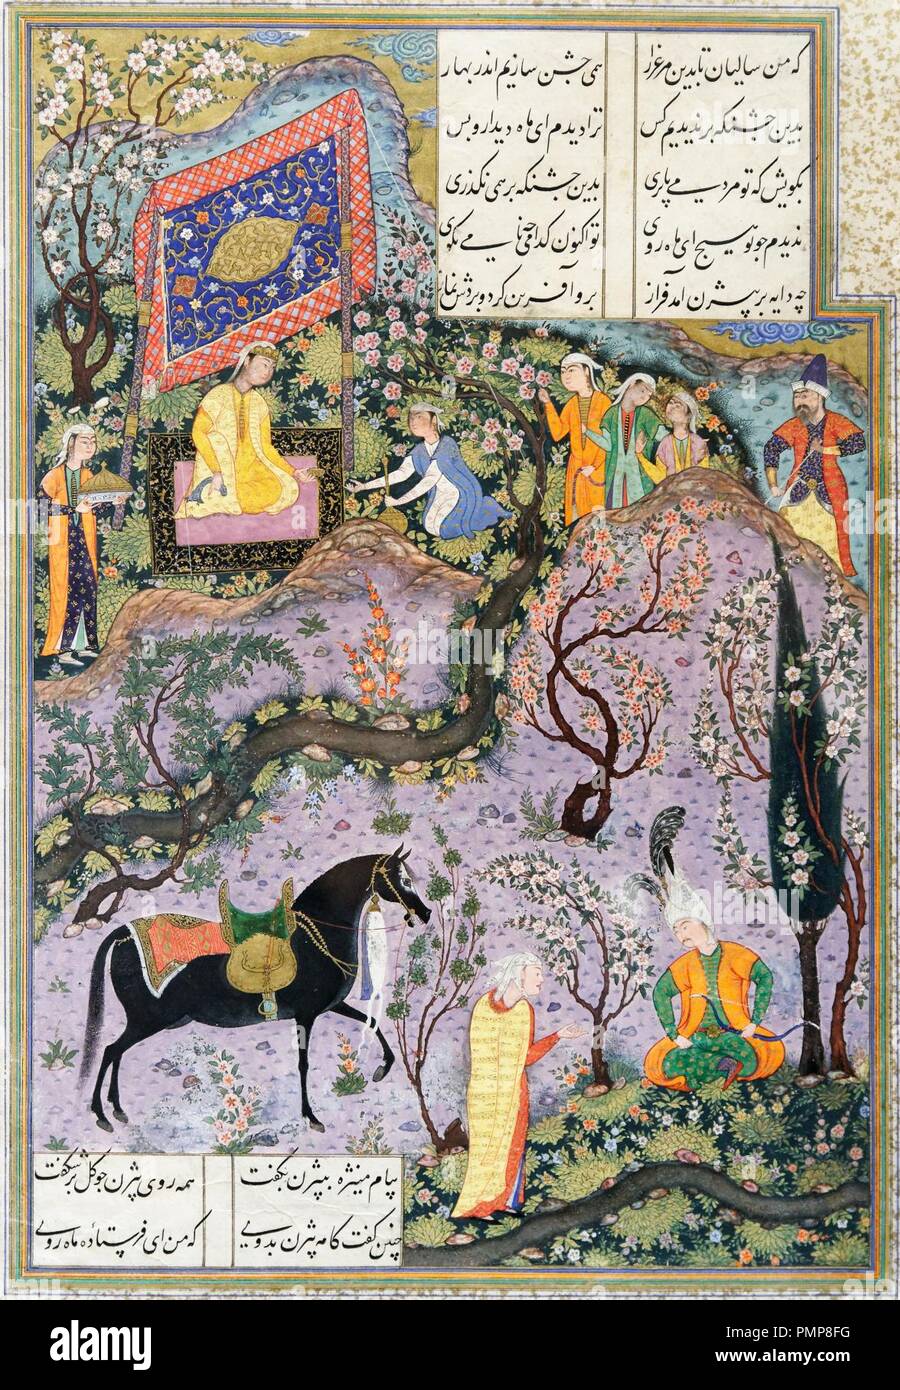 که من سالیان تا بدین مرغزار همی جشن سازم اندر بهار
بدین جشنگه بر ندیدیم کس ترا دیدم ای ماه دیدار و بس
بگویش که تو مردمی یا پری بدین جشنگه بر همی بگذری
ندیدم چو تو هیچ ای ماه روی تو اکنون کدامی چه نامی بگوی
چو دایه بر بیژن آمد فراز برو آفرین کرد و بردش نماز
پیام منیژه به بیژن بگفت همه روی بیژن چو گل بر شکفت
چنین گفت کامه بیژن بدوی که من ای فرستاده ماه روی
a alamy stock photo
PMP8FG
www.alamy.com